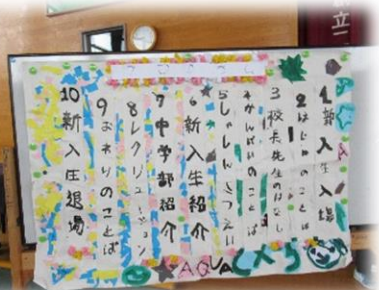 プログラム
1新入生入場
2はじめのことば
3校長先生のはなし
4かんげいのことば
5しゃしんさつえい
6新入生紹介
7中学部紹介
8レクリエーション
9おわりのことば
10新入生退場
AQUA